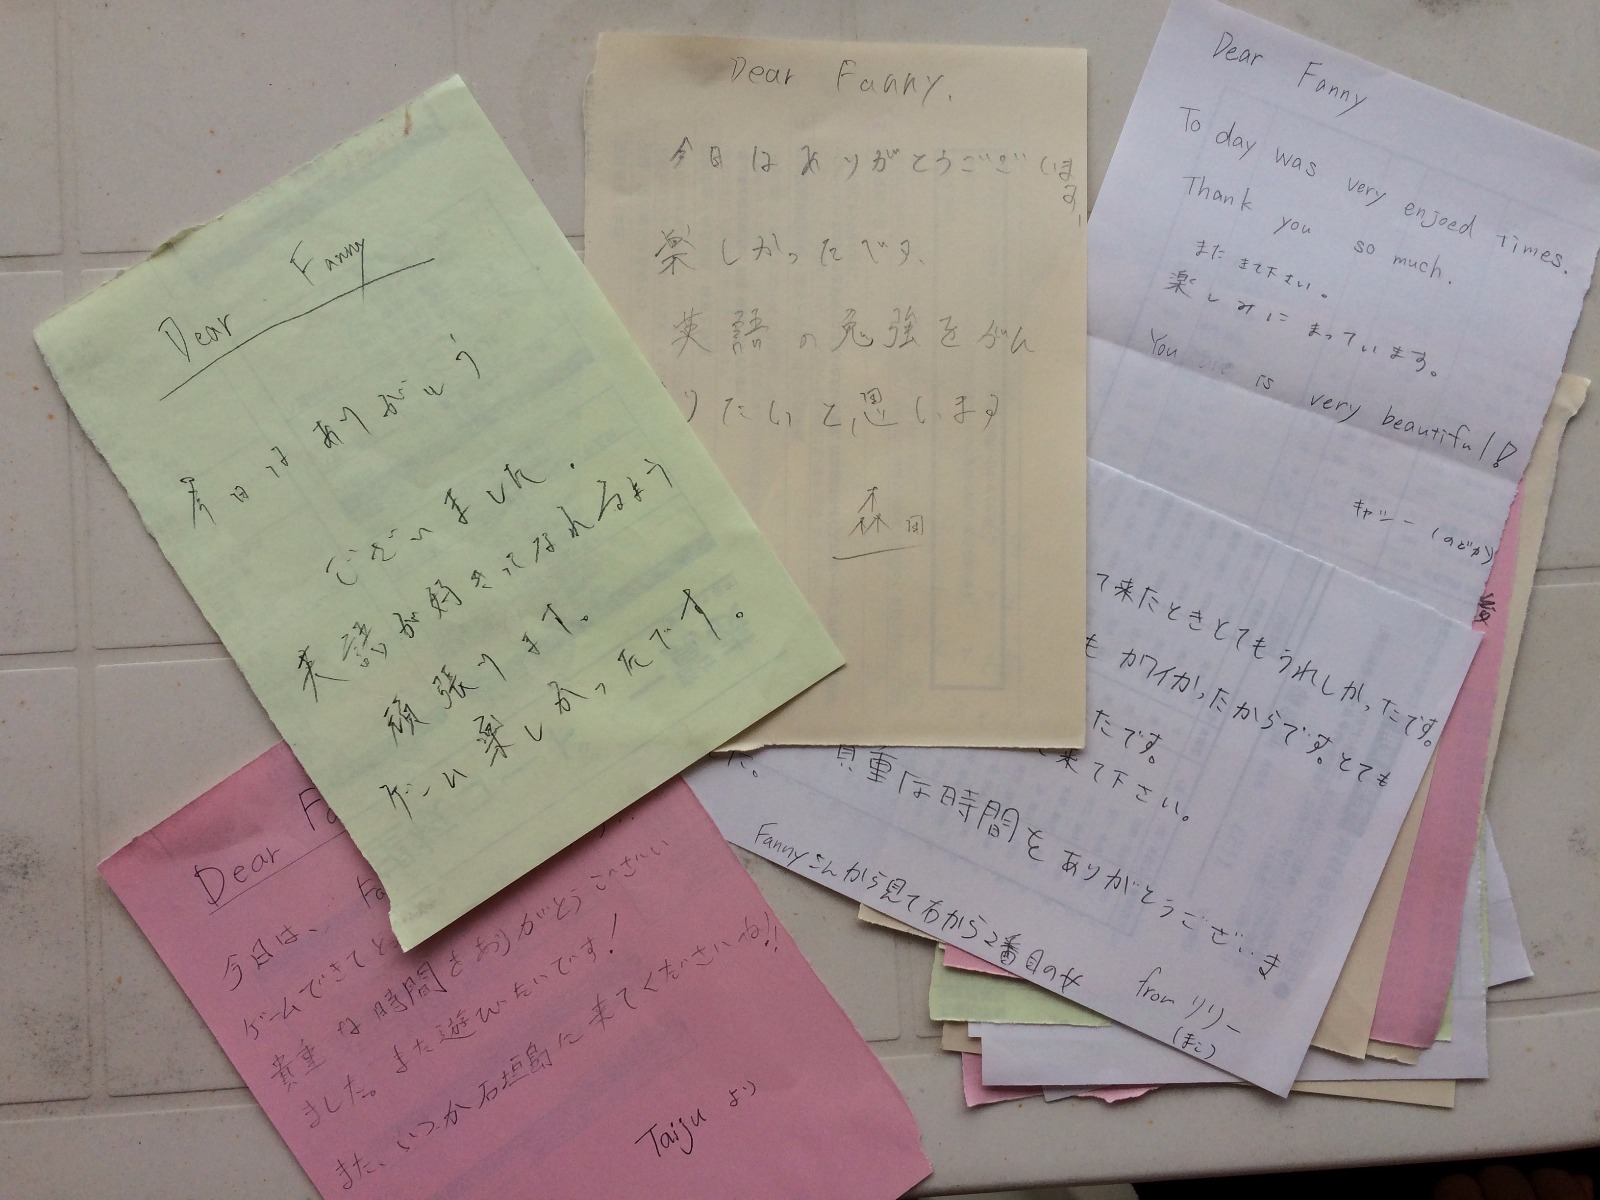 Dear Fanny
今日はありがとう
ございました.
英語が好きってなれるよう
頑張ります。
ゲーム楽しかったです。
Dear Fanny.
今日はありがとうございます
楽しかったです.
英語の勉強をがん
りたいと思います
森田
Dear Fanny
To day was very enjoed times.
Thank you so much.
また きて下さい。
楽しみに まっています。
You is very beautiful!
キャシー (のどか)
て来たときとてもうれしかったです。
も カワイかったからです。とても
たです。
来て下さい。
た。
貝重は時間をありがとうございま
Fannyさんから見て右から2番目の女
from リリー
(まこ)
Dear Fa
今日は、
ゲームできてと
貴重な時間をありがとうございい
ました。また遊びたいです!
また、いつか石垣島に来てくださいね!!
Taiju より